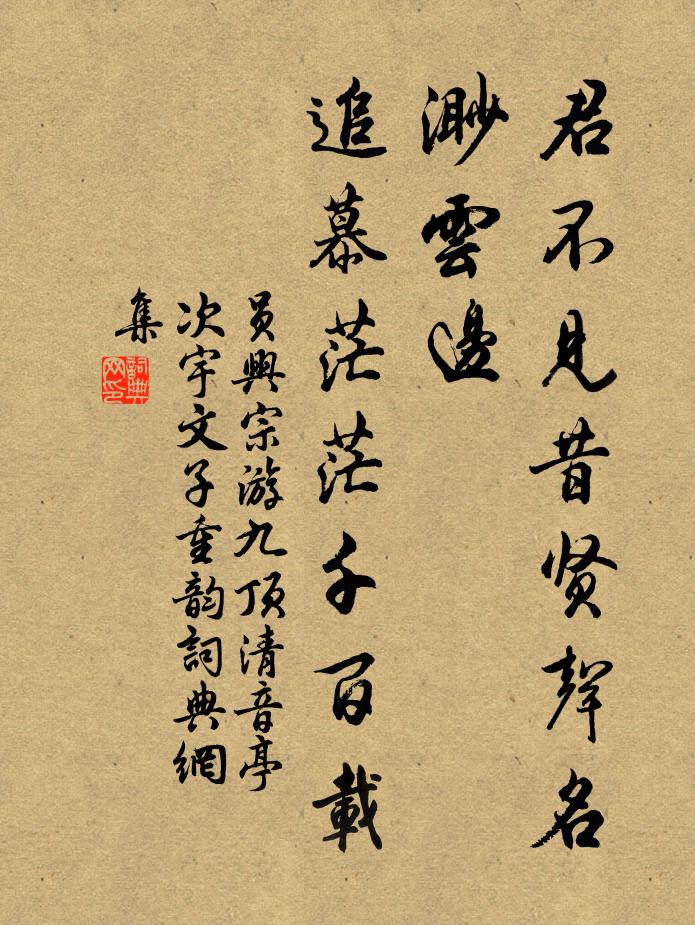 君不见昔贤声名
渺雲邊
追慕茫茫千百載
员興宗游九顶清音亭
次宇文子重韵詞典網
集
詞典
网印